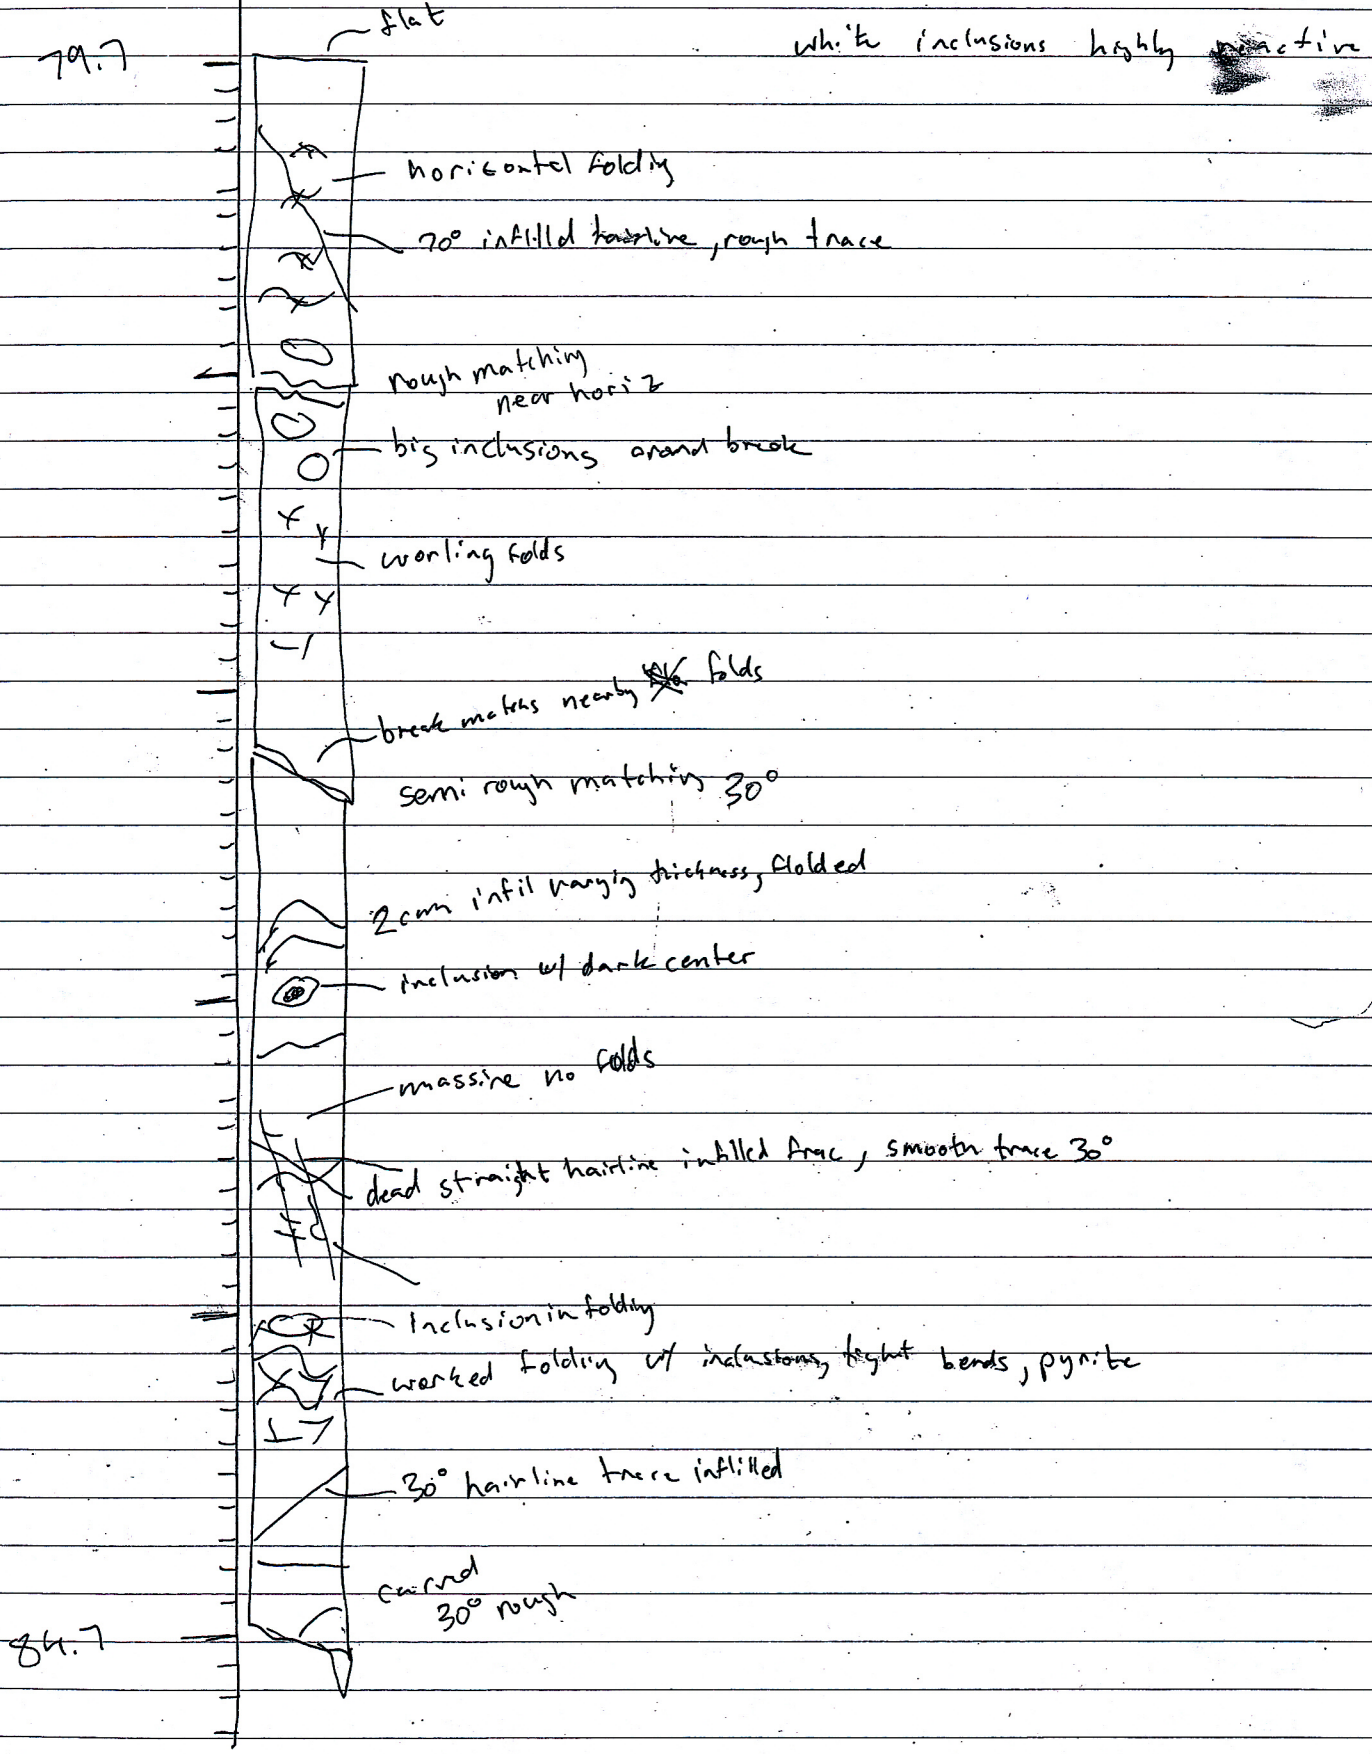 flat
white inclusions highly reactive
79.7
horizontal folding
70° infilld hairline, rough trace
rough matching
near horiz
big inclusions around break
worling folds
break matchs nearby folds
semi rough matching 30°
2cm infil varying thickness, flolded
inclusion w/ dark center
massive no folds
dead straight hairline infilled frac, smooth trace 30°
Inclusion in folding
worked folding w/ inclusions, tight bends, pyrite
30° hairline trace inflilled
curved
30° rough
84.7